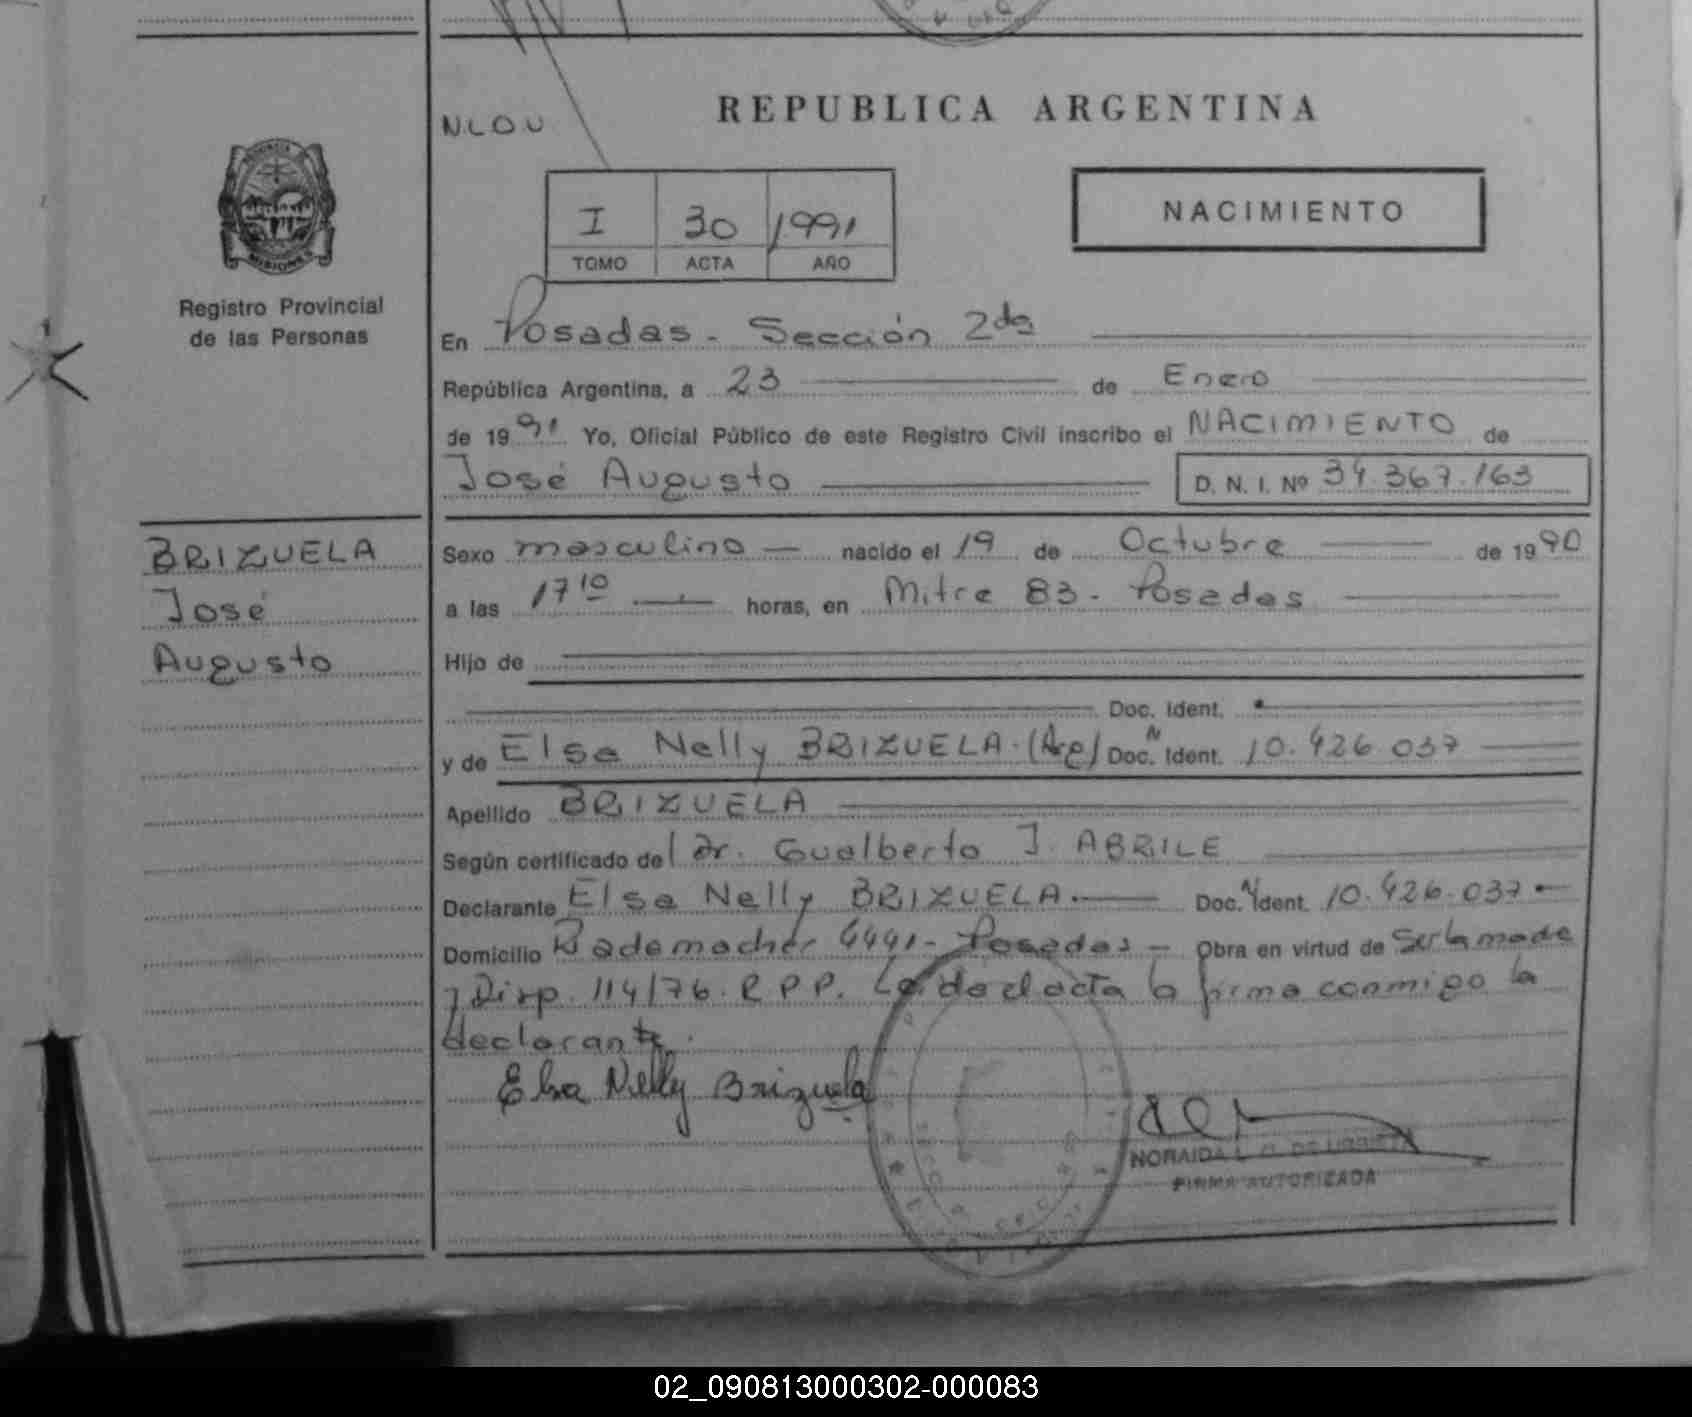 REPUBLICA ARGENTINA
NLOU
NACIMIENTO
I 30 1991
TOMO ACTA AÑO
MISIONES
Registro Provincial
de las Personas
En Posadas - Sección 2da
República Argentina, a 23 de Enero
de 1991 Yo, Oficial Público de este Registro Civil inscribo el NACIMIENTO de
José Augusto D. N. I. Nº 34.367.163
BRIZUELA
José
Augusto
Sexo masculino nacido el 19 de Octubre de 1990
a las 17 10 horas, en Mitre 83 - Posadas
Hijo de
Doc. Ident.
y de Elsa Nelly BRIZUELA (Arg) Doc. N Ident. 10.426.037
Apellido BRIZUELA
Según certificado del Dr. Gualberto J. ABRILE
Declarante Elsa Nelly BRIZUELA Doc. N Ident. 10.426.037
Domicilio Rademacher 4491 - Posadas - Obra en virtud de ser la madre
y Disp. 114/76 R P P. Leída el acta la firma conmigo la
declarante.
Elsa Nelly Brizuela
NORAIDA L. DE
FIRMA AUTORIZADA
02_090813000302-000083